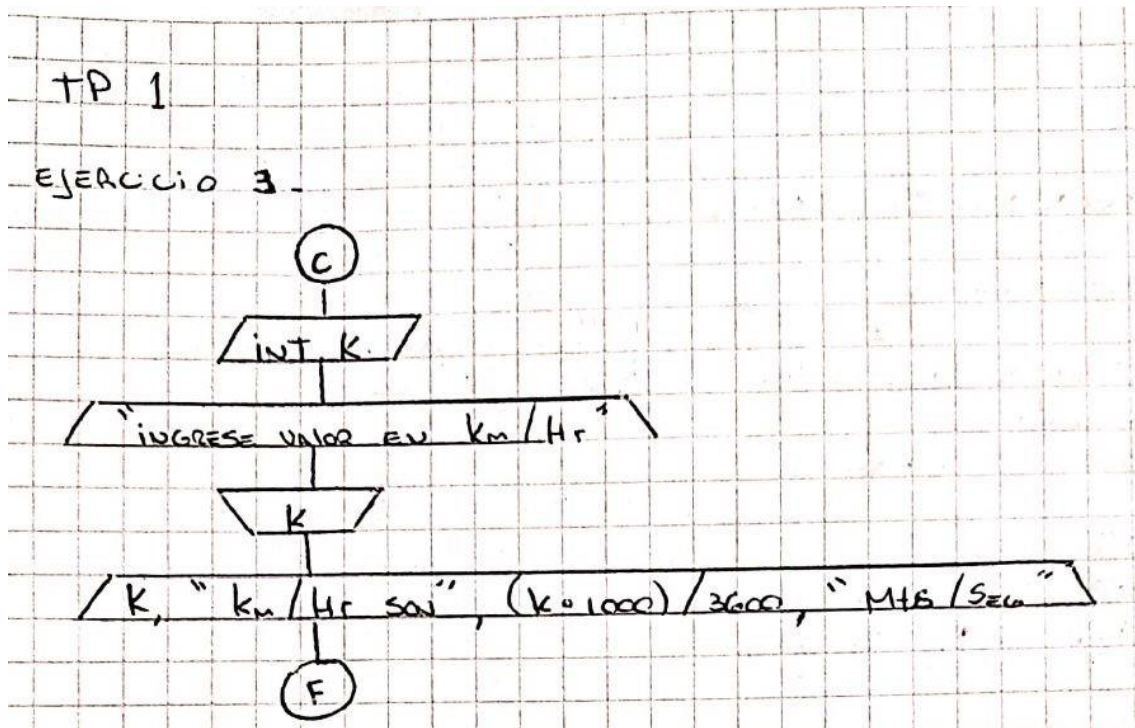 TP 1
EJERCiCiO 3-
C
iNT K.
"iNGRESE VAlOR EN Km/Hr"
K
K, "Km/Hr SON", (K*1000)/3600, "Mts/SEG"
F